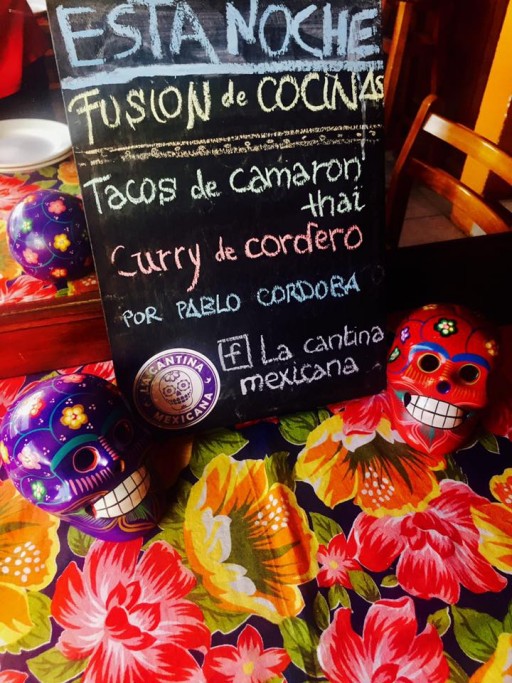 ESTA NOCHE
FUSION de COCINAS
Tacos de camaron
thai
Curry de cordero
POR PABLO CORDOBA
f La cantina
mexicana
LA CANTINA
MEXICANA